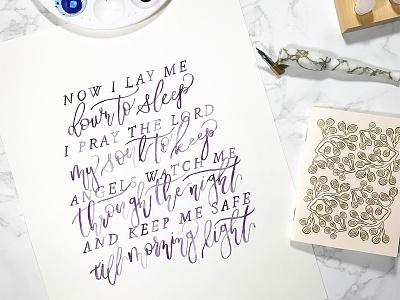 NOW I LAY ME
down to sleep
I PRAY THE LORD
my soul to keep
ANGELS WATCH ME
through the night
AND KEEP ME SAFE
till morning light